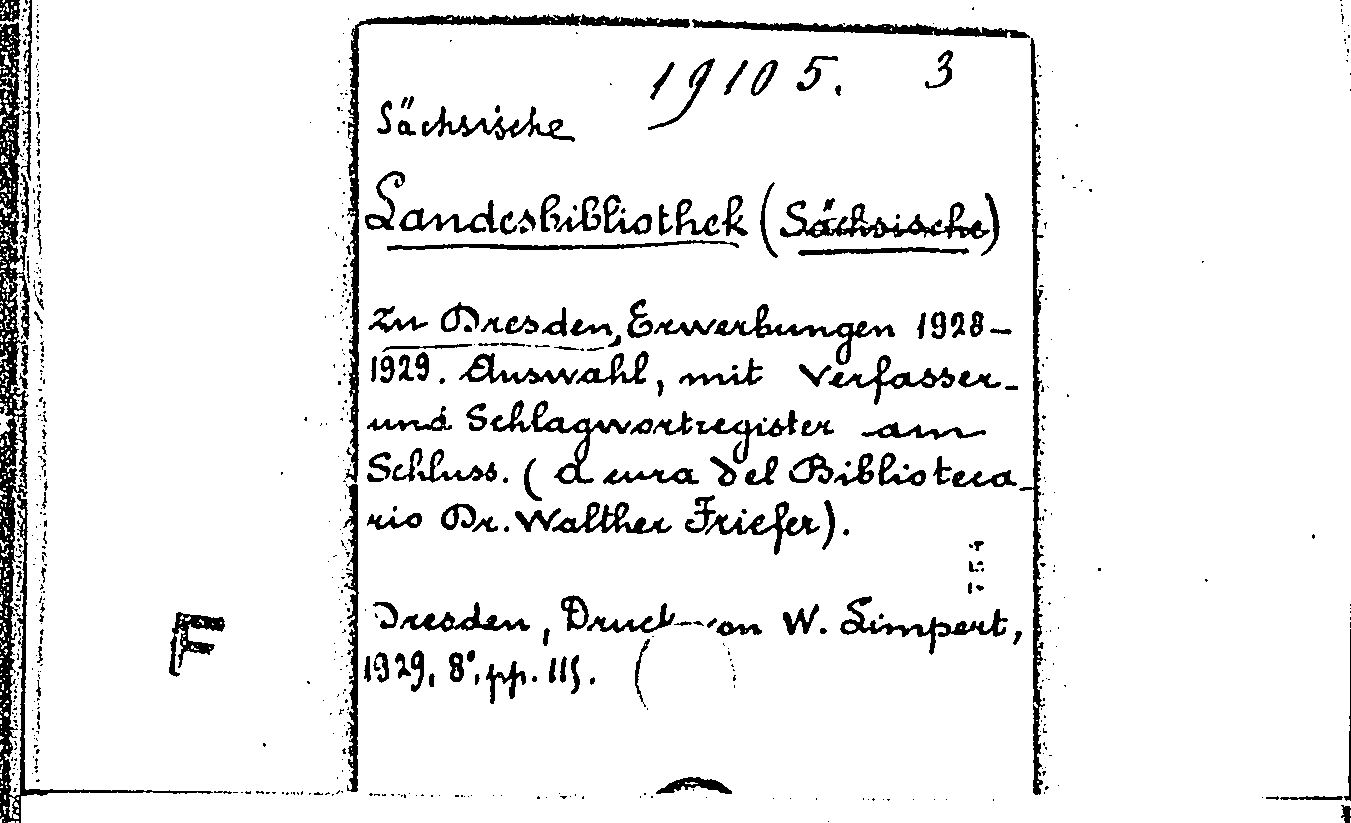 19105. 3
Sächsische
Landesbibliothek (Sächsische)
zu Dresden, Erwerbungen 1928-
1929. Auswahl, mit Verfasser-
und Schlagwortregister am
Schluss. (A cura del Biblioteca-
rio Dr. Walther Friefer).
Dresden, Druck von W. Limpert,
1929, 8°, pp. 115.
F